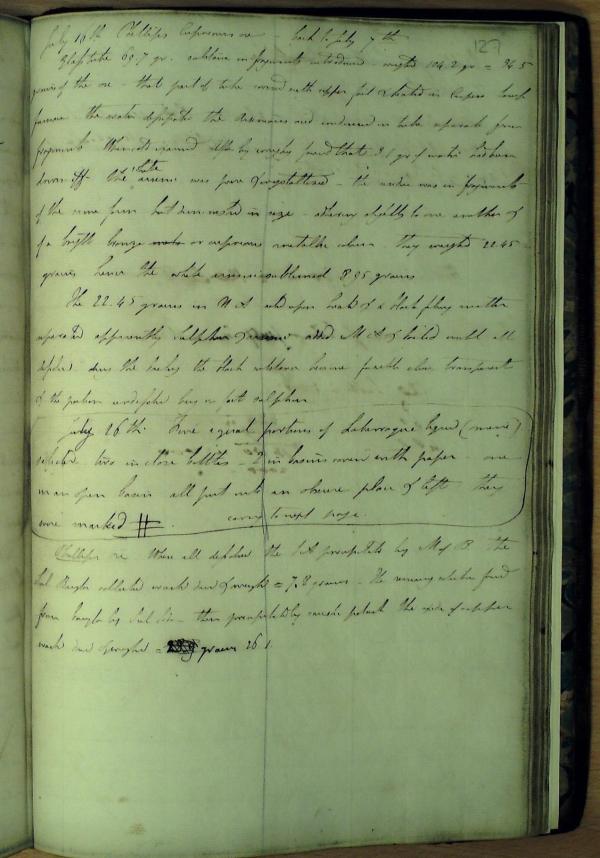 127
July 16th Phillips Cupreous ore back to July 7th
Glass tube 69.7 gr. substance in fragments introduced weighed 104.2 gr = 34.5
grains of the ore - that part of tube covered with upper foil & heated in
furnace the water dissipated the arsenious acid condensed in tube separate from
fragments When cold removed after by weighing found that 3.1 gr of water had been
driven off. The white arsenic was pure & crystallized - the residue was in fragments
of the same form but diminished in size - adhering slightly to one another &
of a bright bronze or cupreous metallic colour. They weighed 22.45
grains hence the white arsenic sublimed 8.95 grains
The 22.45 grains in N A acted upon heat & a black flaky matter
separated apparently sulphur & added M A & boiled until all
dissolved during the boiling the black substance became fusible clear transparent
& the portion undissolved was in fact sulphur
July 26th. Five equal portions of Labarraque liquid (mine)
selected two in close bottles - 2 in basins covered with paper - one
in an open basin all put into an obscure place & left they
were marked ⌗. carry to next page.
Phillips ore When all dissolved the S A precipitated by M of B. the
Sul Baryta collected washed dried & weighed = 7.8 grains - The remaining solution freed
from baryta by Sul then precipitated by caustic potash the oxide of copper
washed dried & weighed = grains 26.1.